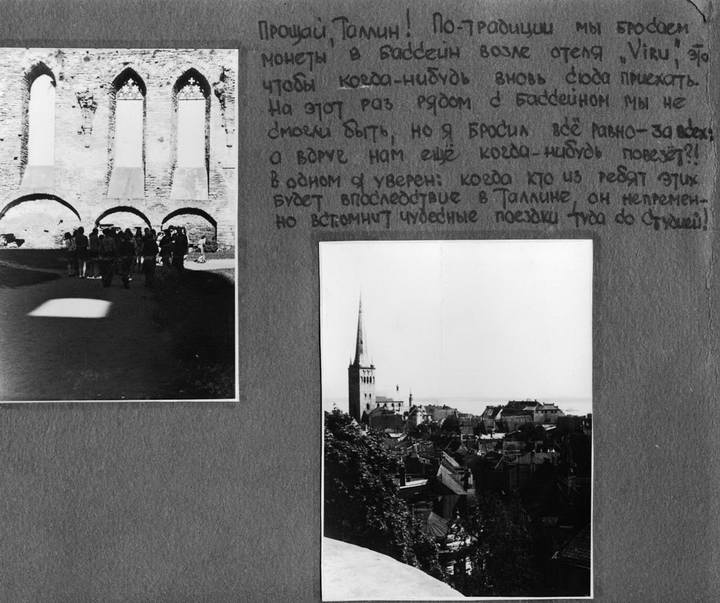 Прощай, Таллин! По-традиции мы бросаем
монеты в бассейн возле отеля „Viru", это
чтобы когда-нибудь вновь сюда приехать.
На этот раз рядом с бассейном мы не
смогли быть, но я бросил всё равно-за всех;
а вдруг нам ещё когда-нибудь повезёт?!
В одном я уверен: когда кто из ребят этих
будет впоследствие в Таллине, он непремен-
но вспомнит чудесные поездки туда со Студией!